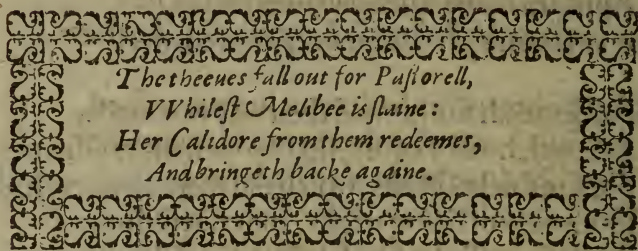 The theeues fall out for Paſtorell,
VVhileſt Melibee is ſlaine:
Her Calidore from them redeemes,
And bringeth backe againe.